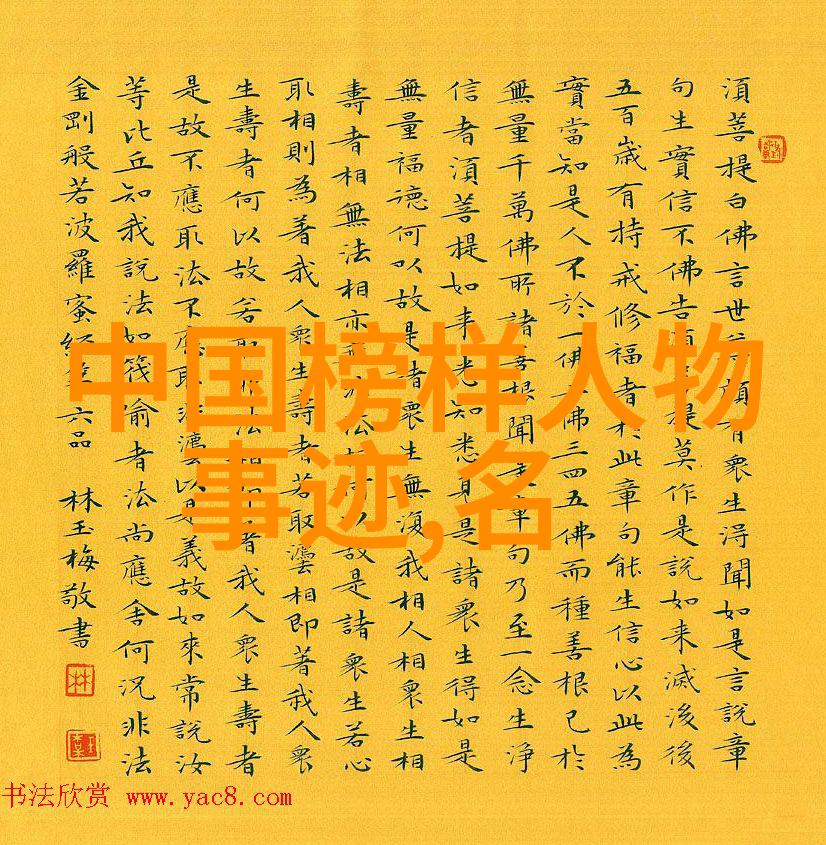 中国榜样人物
事迹,名
須菩提白佛言世尊頗有衆生得聞如是言說章
句生實信不佛告須菩提莫作是說如来滅後後
五百歲有持戒修福者於此章句能生信心以此為
實當知是人不於一佛二佛三四五佛而種善根已於
無量千萬佛所諸善根聞是章句乃至一念生净
信者須菩提如来悉知悉見是諸衆生得如是
無量福德何以故是諸衆生無復我相人相衆生相
壽者相無法相亦無非法相何以故是諸衆生若心
取相則為著我人衆生壽者若取法相即著我人衆
生壽者何以故若取非法相即著我人衆生壽者
是故不應取法不應取非法以是義故如來常說汝
等比丘知我說法如筏喻者法尚應舍何况非法
金剛般若波羅蜜經第六品 林玉梅敬書
林
书法欣赏 www.yac8.com